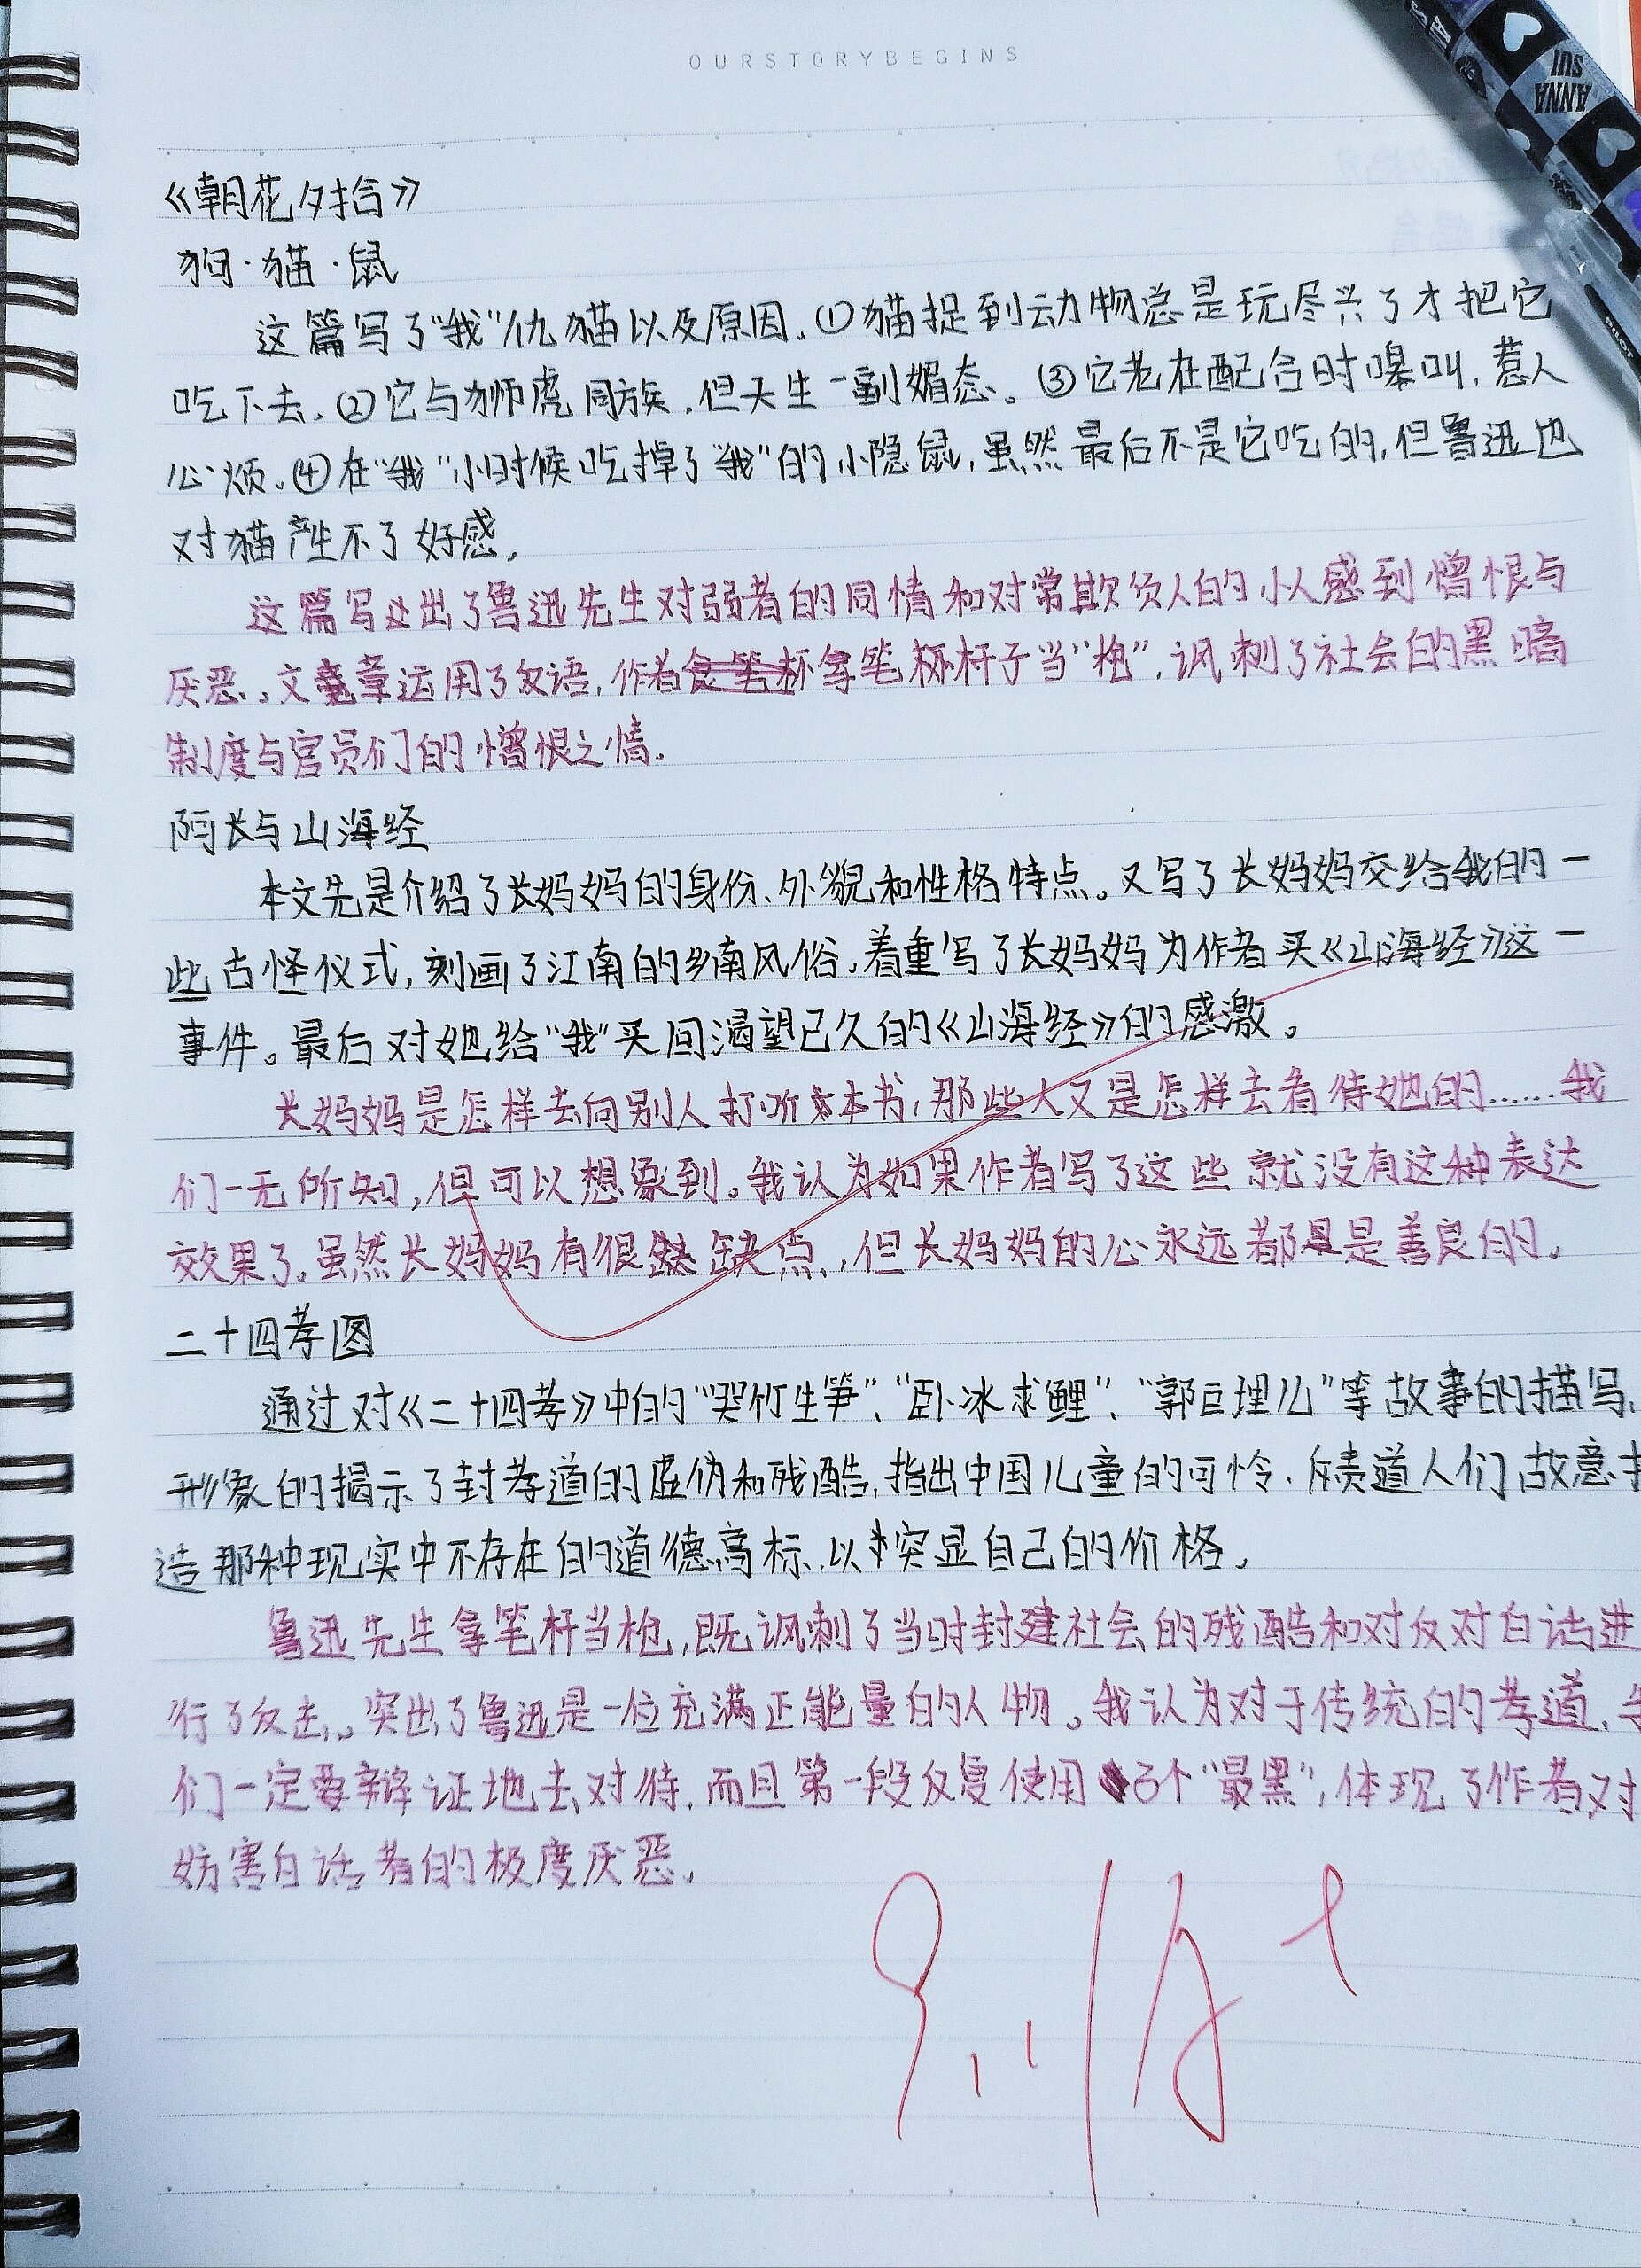 OURSTORYBEGINS
ANNA
SUI
《朝花夕拾》
狗·猫·鼠
这篇写了"我"仇猫以及原因。①猫捉到动物总是玩尽兴了才把它
吃下去。②它与狮虎同族，但天生一副媚态。③它老在配合时嗥叫，惹人
心烦。④在"我"小时候吃掉了"我"的小隐鼠，虽然最后不是它吃的，但鲁迅也
对猫产生不了好感。
这篇写出了鲁迅先生对弱者的同情和对常欺负人的小人感到憎恨与
厌恶。文章运用了反语，作者拿笔杆子当"枪"，讽刺了社会的黑暗
制度与官员们的憎恨之情。
阿长与山海经
本文先是介绍了长妈妈的身份、外貌和性格特点。又写了长妈妈交给我的一
些古怪仪式，刻画了江南的乡南风俗。着重写了长妈妈为作者买《山海经》这一
事件。最后对她给"我"买回渴望已久的《山海经》的感激。
长妈妈是怎样去向别人打听本书，那些人又是怎样去看待她的……我
们一无所知，但可以想象到。我认为如果作者写了这些就没有这种表达
效果了。虽然长妈妈有很缺点，但长妈妈的心永远都是善良的。
二十四孝图
通过对《二十四孝》中的"哭竹生笋"、"卧冰求鲤"、"郭巨埋儿"等故事的描写，
形象的揭示了封孝道的虚伪和残酷，指出中国儿童的可怜，斥责道人们故意
造那种现实中不存在的道德高标，以突显自己的价格。
鲁迅先生拿笔杆当枪，既讽刺了当时封建社会的残酷和对反对白话进
行了反击。突出了鲁迅是一位充满正能量的人物。我认为对于传统的孝道，
们一定要辩证地去对待，而且第一段反复使用3个"最黑"，体现了作者对
妨害白话者的极度厌恶。